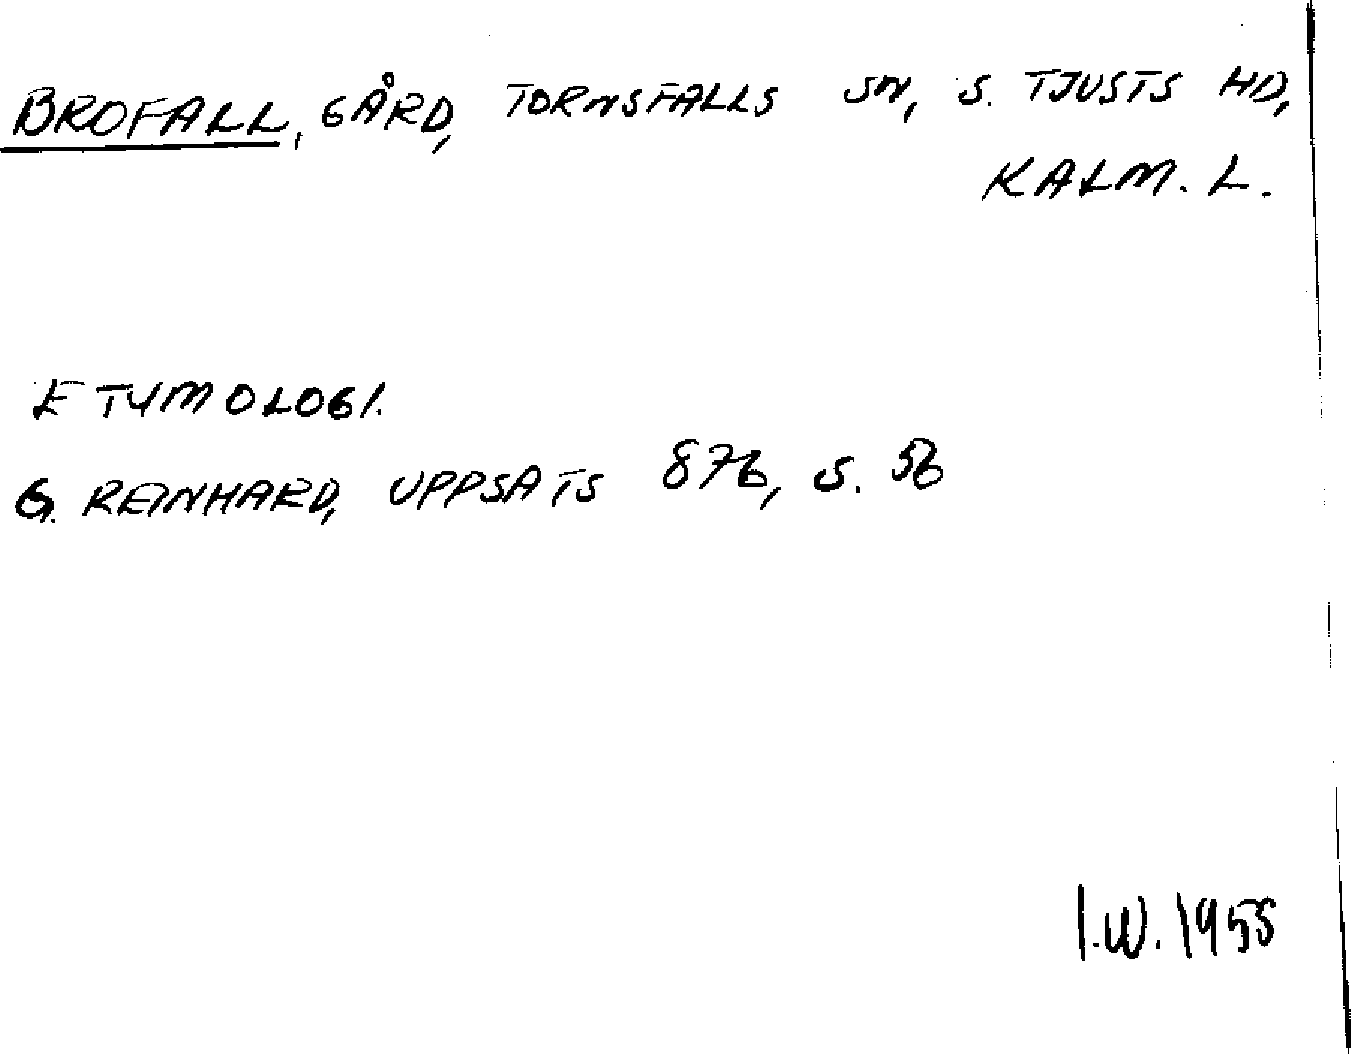 BROFALL, GÅRD, TORNSFALLS SN, S. TJUSTS HD,
KALM. L.
ETYMOLOGI.
G. REINHARD, UPPSATS 876, S. 56
I.W. 1955